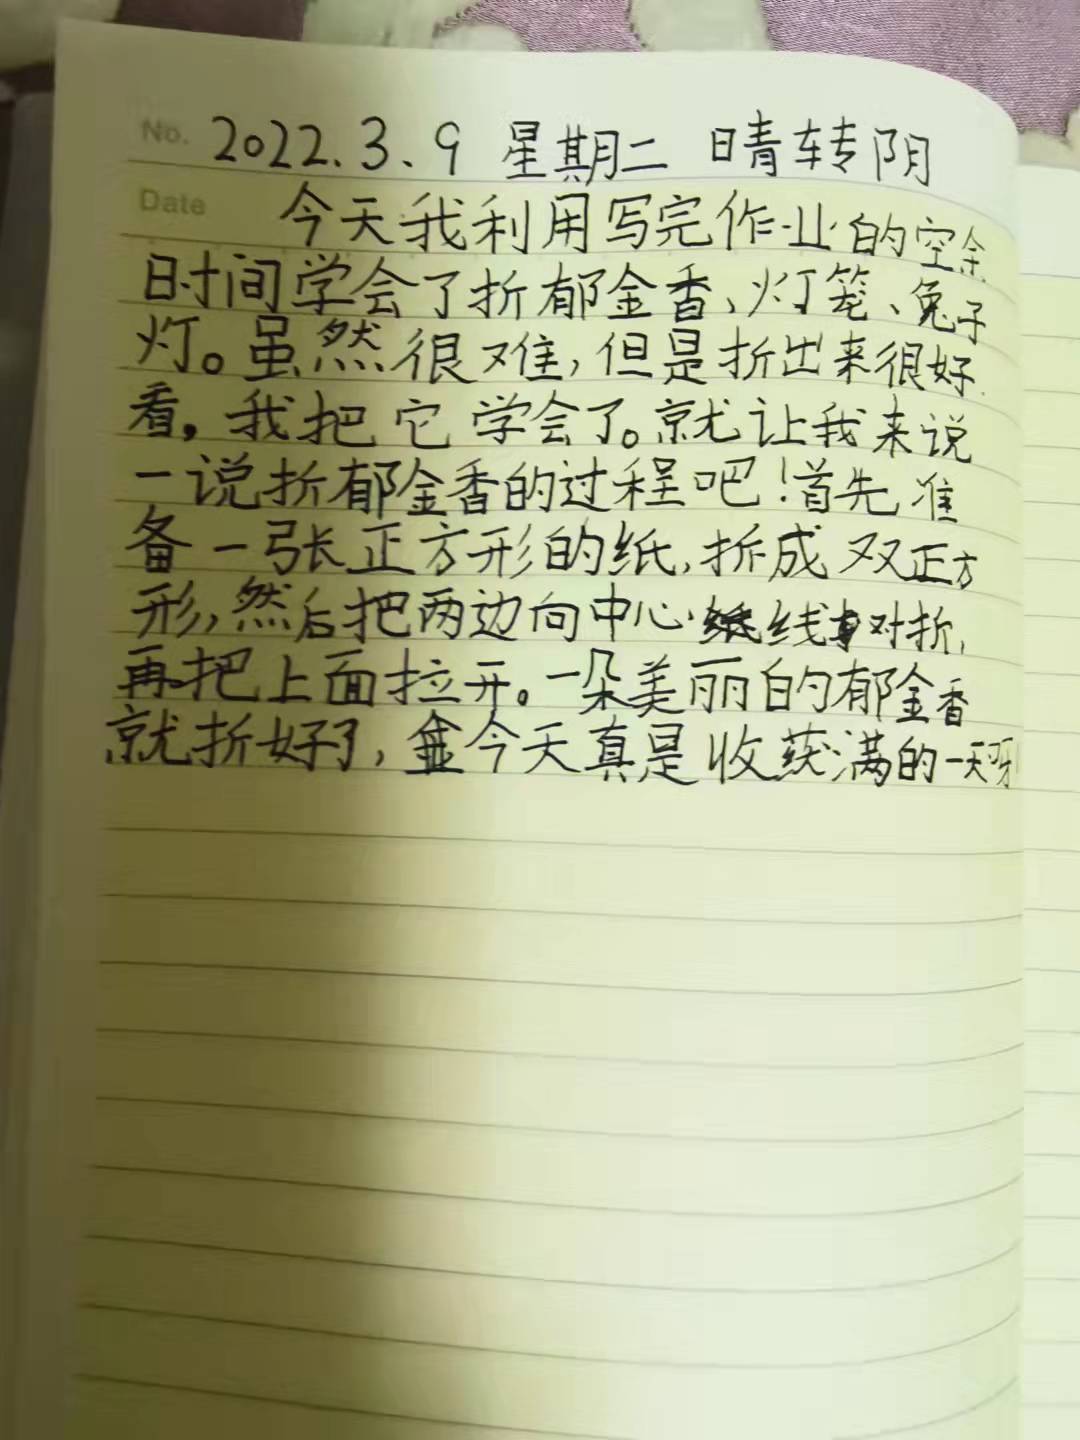 No. 2022.3.9 星期二 晴转阴
Date 今天我利用写完作业的空余
时间学会了折郁金香、灯笼、兔子
灯。虽然很难,但是折出来很好
看,我把它学会了。就让我来说
一说折郁金香的过程吧!首先准
备一张正方形的纸,折成双正方
形,然后把两边向中心线对折,
再把上面拉开。一朵美丽的郁金香
就折好了,今天真是收获满的一天呀